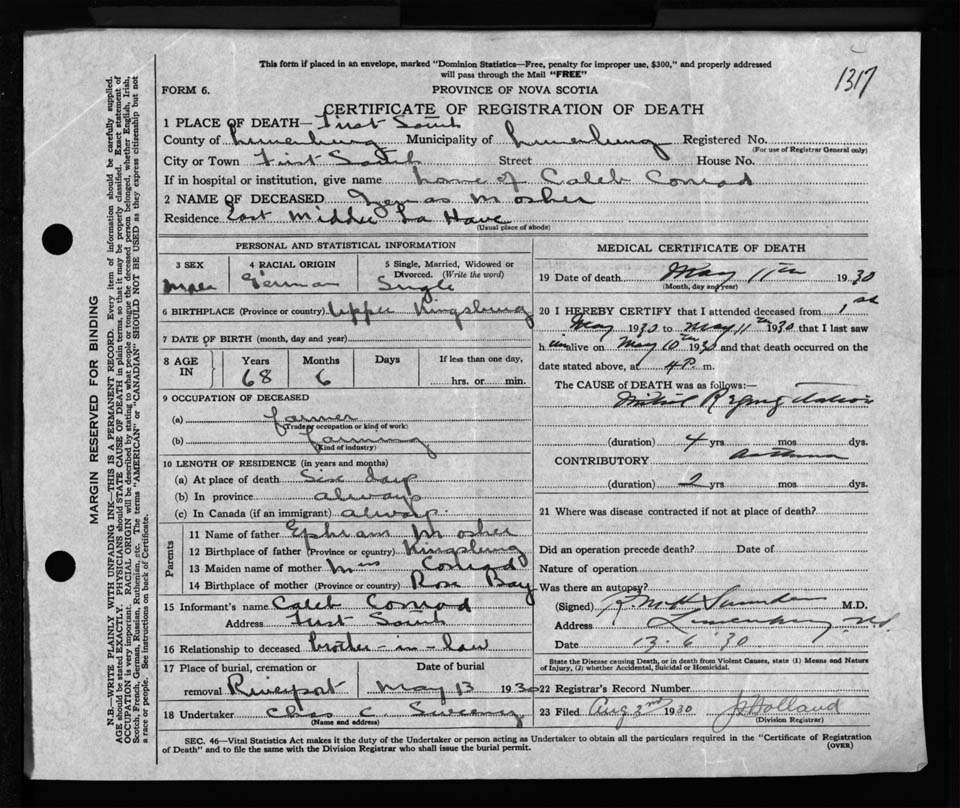 This form if placed in an envelope, marked "Dominion Statistics—Free, penalty for improper use, $300," and properly addressed
will pass through the Mail "FREE"
1317
FORM 6.
PROVINCE OF NOVA SCOTIA
CERTIFICATE OF REGISTRATION OF DEATH
1 PLACE OF DEATH— First South
County of Lunenburg Municipality of Lunenburg Registered No.
(For use of Registrar General only)
City or Town First South Street House No.
If in hospital or institution, give name home of Caleb Conrad
2 NAME OF DECEASED Mosher
Residence East Middle La Have
(Usual place of abode)
PERSONAL AND STATISTICAL INFORMATION
3 SEX
4 RACIAL ORIGIN
5 Single, Married, Widowed or
Divorced. (Write the word)
Male German Single
6 BIRTHPLACE (Province or country) Upper Kingsburg
7 DATE OF BIRTH (month, day and year)
8 AGE
IN
Years Months Days If less than one day,
68 6 hrs. or min.
9 OCCUPATION OF DECEASED
(a) farmer
(Trade or occupation or kind of work)
(b) farming
(Kind of industry)
10 LENGTH OF RESIDENCE (in years and months)
(a) At place of death Six days
(b) In province always
(c) In Canada (if an immigrant) always
Parents
11 Name of father Ephram Mosher
12 Birthplace of father (Province or country) Kingsburg
13 Maiden name of mother Miss Conrad
14 Birthplace of mother (Province or country) Rose Bay
15 Informant's name Caleb Conrad
Address First South
16 Relationship to deceased brother-in-law
17 Place of burial, cremation or Date of burial
removal Riverport May 13 1930
18 Undertaker Chas C. Sweeny
(Name and address)
MEDICAL CERTIFICATE OF DEATH
19 Date of death May 11th 1930
(Month, day and year)
20 I HEREBY CERTIFY that I attended deceased from 1st
May 1930 to May 11th 1930 that I last saw
h im alive on May 10th 1930 and that death occurred on the
date stated above, at 4 P. m.
The CAUSE of DEATH was as follows:—
Mitral Regurgitation
(duration) 4 yrs mos dys.
CONTRIBUTORY asthma
(duration) 2 yrs mos dys.
21 Where was disease contracted if not at place of death?
Did an operation precede death? Date of
Nature of operation
Was there an autopsy?
(Signed) M.D.
Address Lunenburg
Date 13.6.30
State the Disease causing Death, or in death from Violent Causes, state (1) Means and Nature
of Injury, (2) whether Accidental, Suicidal or Homicidal.
22 Registrar's Record Number
23 Filed Aug 2nd 1930 J Holland
(Division Registrar)
SEC. 46—Vital Statistics Act makes it the duty of the Undertaker or person acting as Undertaker to obtain all the particulars required in the "Certificate of Registration
of Death" and to file the same with the Division Registrar who shall issue the burial permit.
(OVER)
MARGIN RESERVED FOR BINDING
N.B.—WRITE PLAINLY WITH UNFADING INK—THIS IS A PERMANENT RECORD. Every item of information should be carefully supplied.
AGE should be stated EXACTLY. PHYSICIANS should STATE CAUSE OF DEATH in plain terms, so that it may be properly classified. Exact statement of
OCCUPATION is very important. RACIAL ORIGIN will be described by stating to what people or tongue the deceased person belonged, whether English, Irish,
Scotch, French, German, Russian, Ruthenian, etc. The terms "AMERICAN" or "CANADIAN" SHOULD NOT BE USED as they express citizenship but not
a race or people. See instructions on back of Certificate.